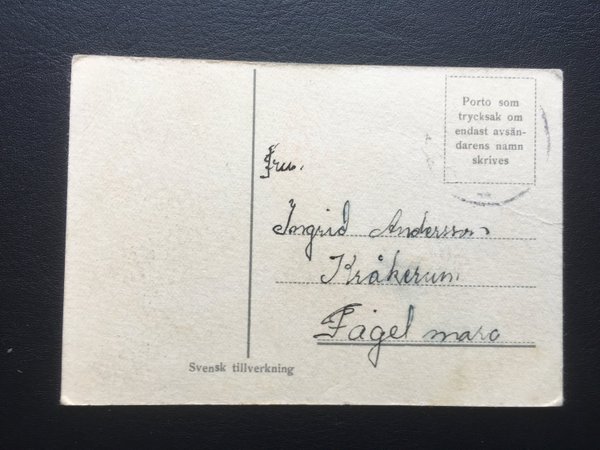 Porto som
trycksak om
endast avsän-
darens namn
skrives
Fru.
Ingrid Andersson
Kråkerum
Fågelmara
Svensk tillverkning